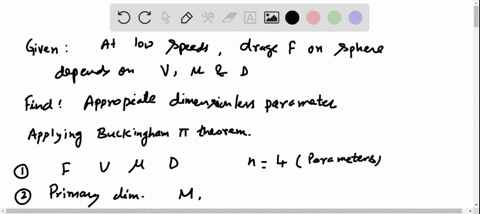 Given: At low speeds, drage F on sphere
depends on V, M & D
Find! Appropiate dimensionless parameter
Applying Buckingham π theorem.
① F V M D n = 4 (Parameters)
② Primary dim. M,